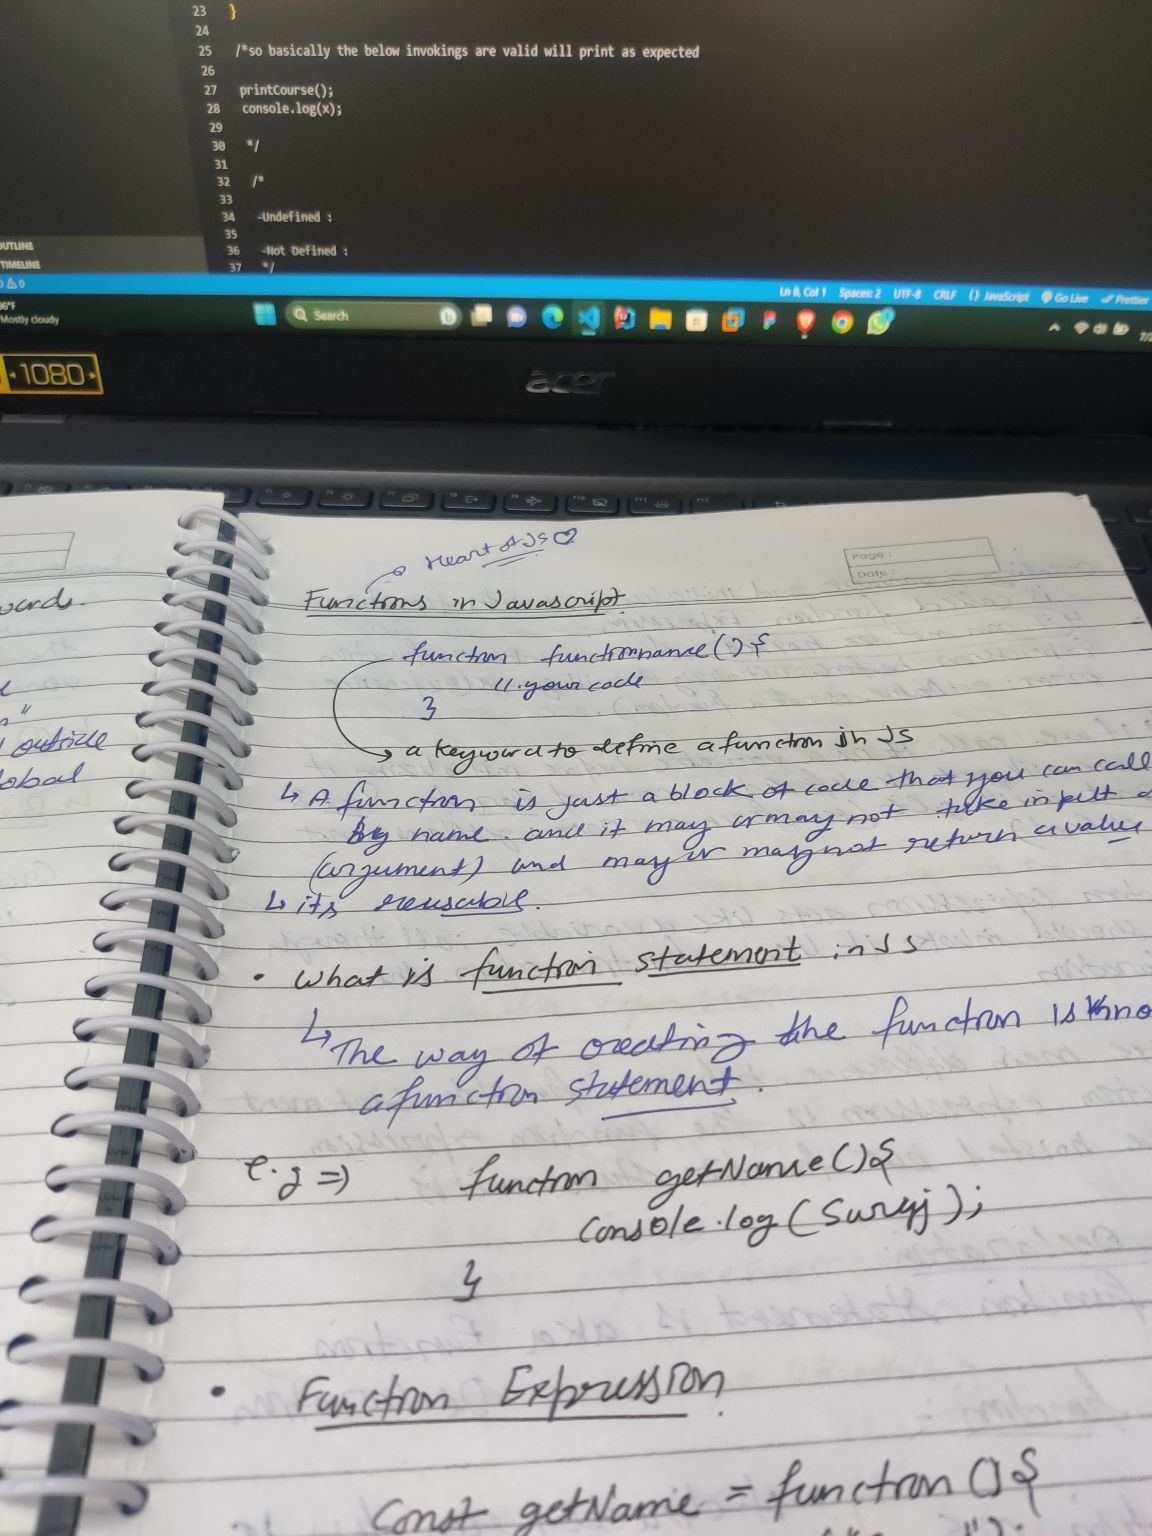 23 }
24
25 /*so basically the below invokings are valid will print as expected
26
27 printCourse();
28 console.log(x);
29
30 */
31
32 /*
33
34 -Undefined :
35
36 -Not Defined :
37 */
OUTLINE
TIMELINE
0
Ln 8, Col 1 Spaces: 2 UTF-8 CRLF {} JavaScript Go Live Prettier
Mostly cloudy
Search
1080
acer
Heart of Js
Page :
Date :
Functions in Javascript
function functionname(){
// your code
}
a keyword to define a function in Js
↳ A function is just a block of code that you can call
by name. and it may or may not take input
(argument) and may or may not return a value
↳ its reusable.
• What is function statement in Js
↳ The way of creating the function is kno
a function statement.
e.g => function getName(){
console.log(Suraj);
}
• Function Expression
const getName = function(){
outside